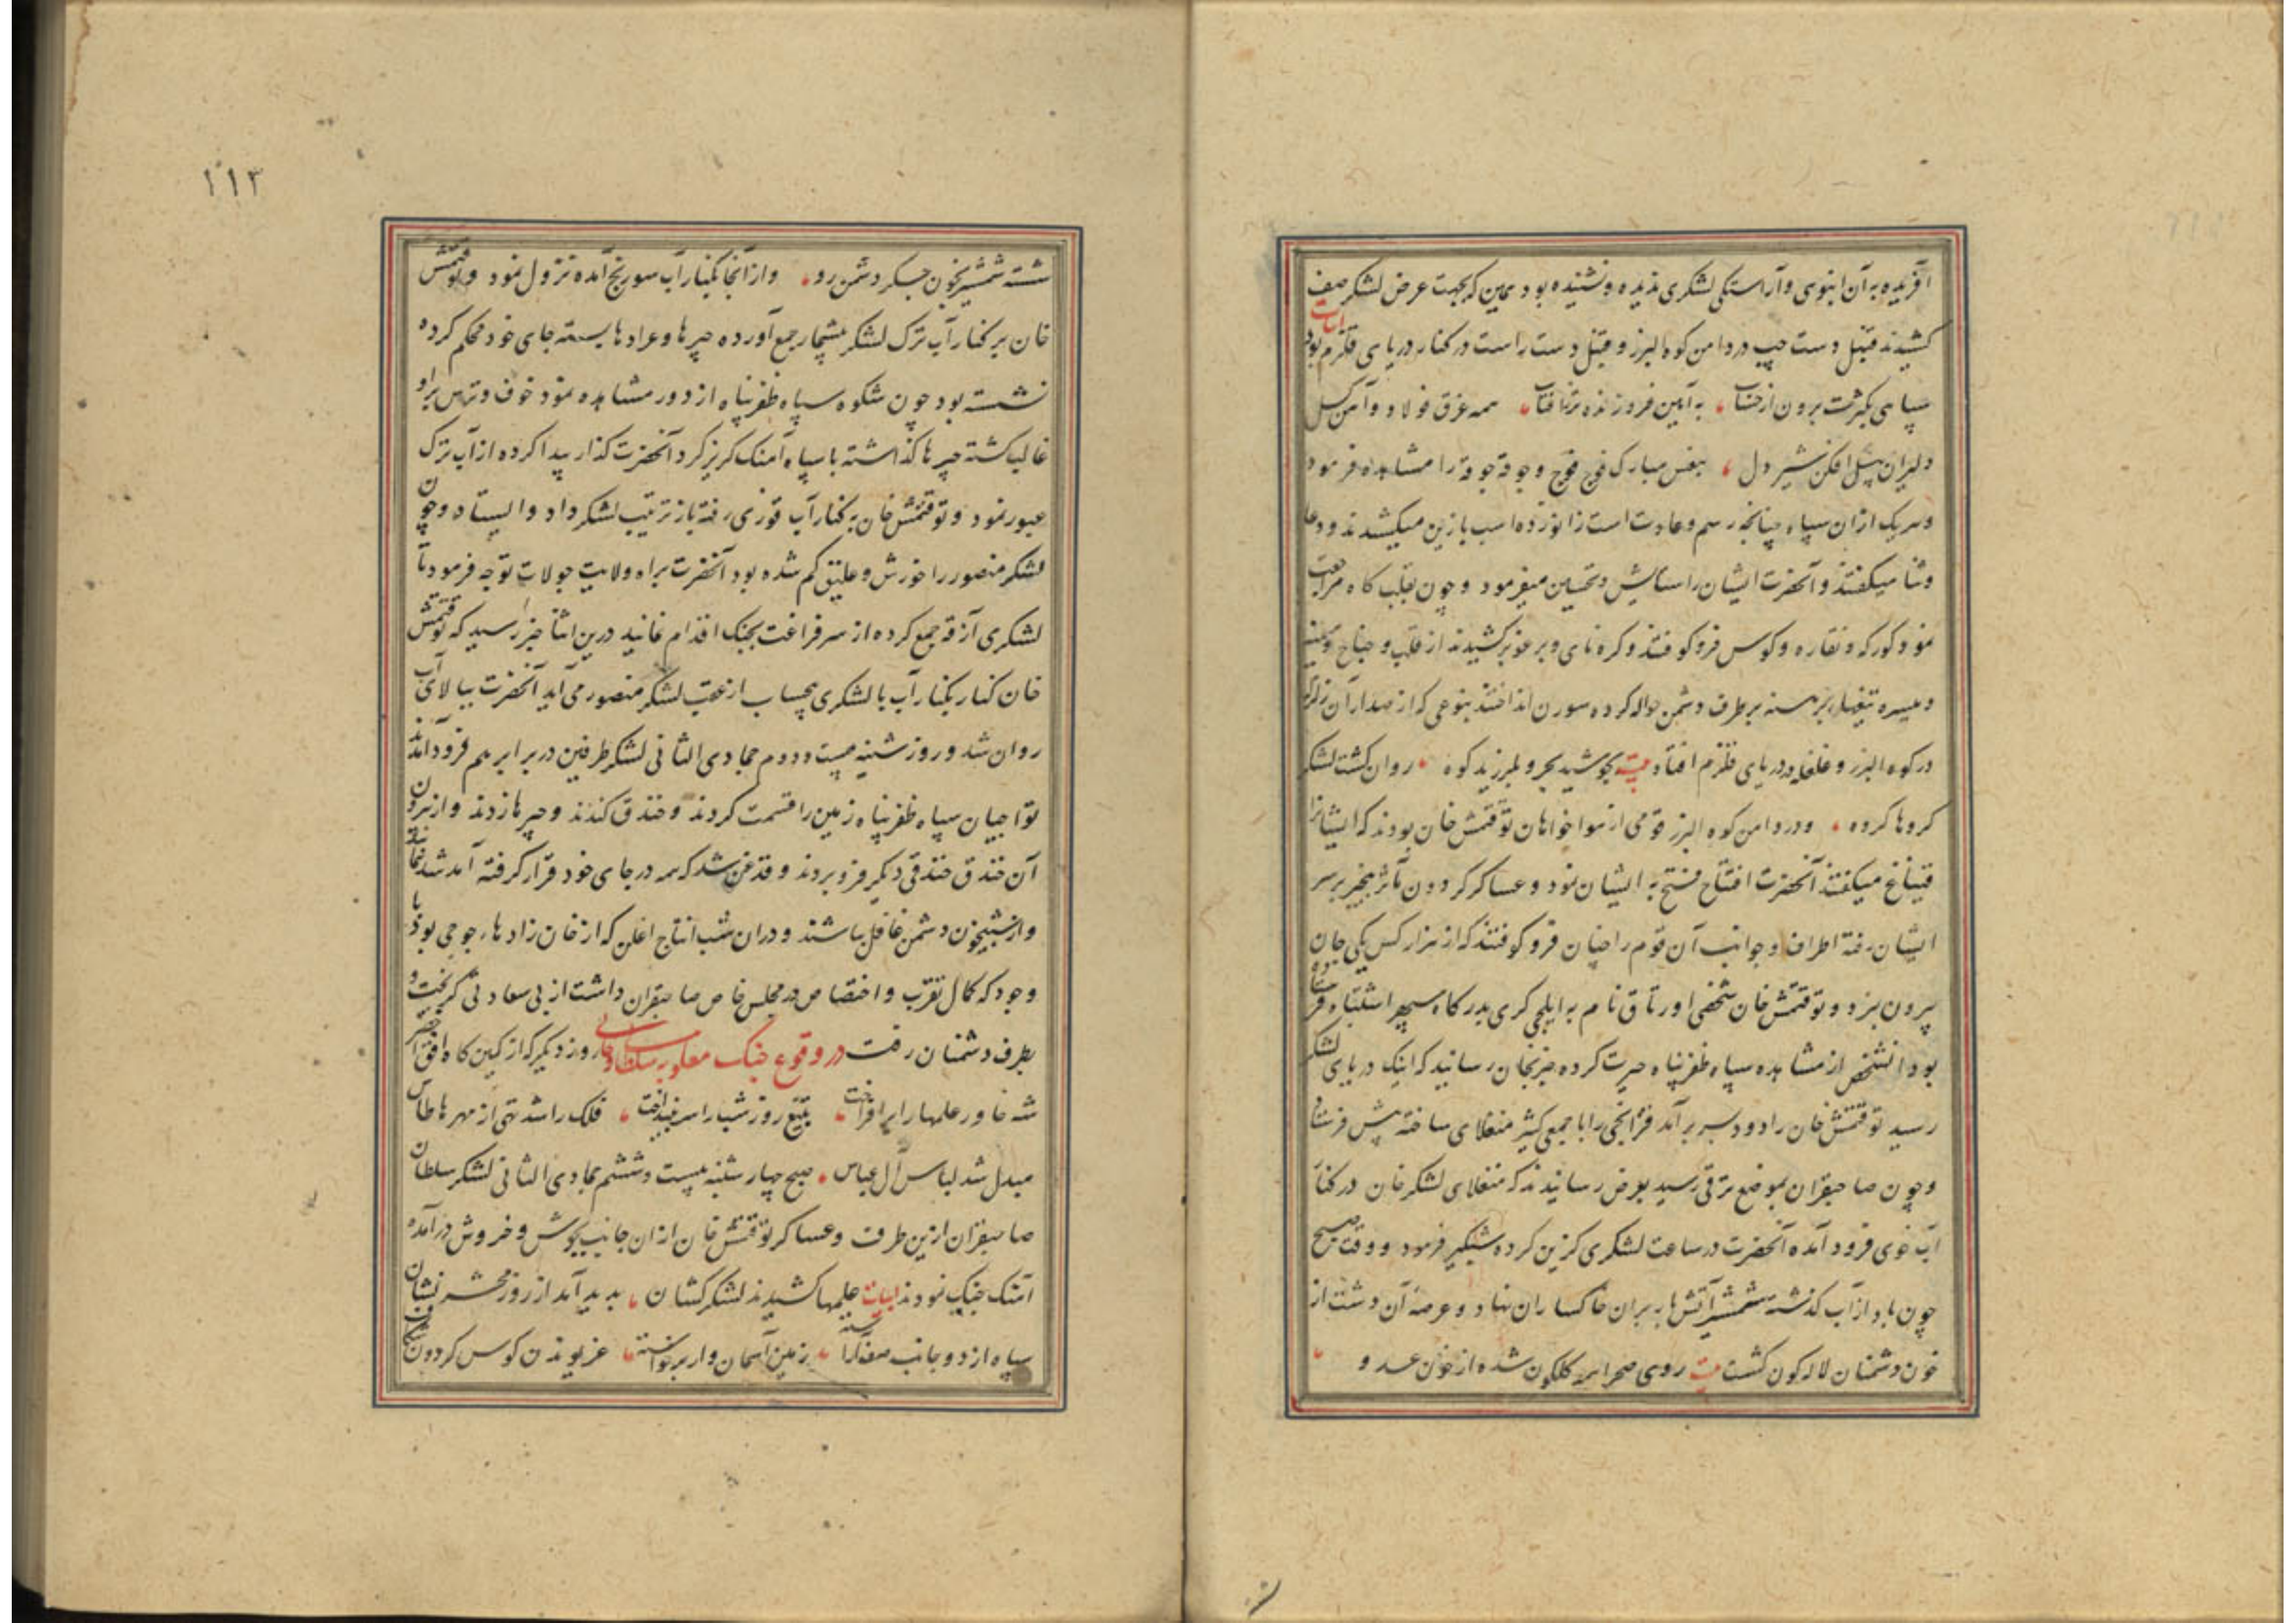 آفریده به آن انبوهی و آراستگی لشکری ندیده و نشنیده بود همین که بجهت عرض لشکر صف
کشیدند قنبل دست چپ در دامن کوه البرز و قنبل دست راست در کنار دریای قلزم بود ابیات
سپاهی بکثرت برون از حساب به آیین فروزنده تر ز آفتاب همه غرق فولاد و آهن کسل
دلیران پیل افکن شیر دل بنفس مبارک فوج فوج و جوقه جوقه را مشاهده فرمود
و هر یک ازان سپاه چنانچه رسم و عادت است زانو زده اسب با زین میکشیدند و دعا
و ثنا میکفتند و آنحضرت ایشان را ستایش و تحسین میفرمود و چون بقلب کاه مراجعت
نمود کورکه و نقاره و کوس فرو کوفتند و کره نای و برغو بر کشیدند از قلب و جناح و میمنه
و میسره تیغها برهنه بر طرف دشمن حواله کرده سورن انداختند بنوعی که از صدای آن زلزله
در کوه البرز و غلغله در دریای قلزم افتاد بیت بجوشید بحر و بلرزید کوه روان کشت لشکر
کروها کروه و در دامن کوه البرز قومی از هوا خواهان توقتمش خان بودند که ایشانرا
قیتاغ میکفتند آنحضرت افتتاح فتح به ایشان نمود و عساکر کردون مآثر بیخبر بر سر
ایشان رفته اطراف و جوانب آن قوم را چنان فرو کوفتند که از هزار کس یکی جان
بیرون نبرد و توقتمش خان شخصی اورتاق نام به ایلچی کری بدرکاه سپهر اشتباه فرستاده
بود آنشخص از مشاهده سپاه ظفرپناه حیرت کرده خبر بخان رسانید که اینک دریای لشکر
رسید توقتمش خان را دود بسر بر آمد قزانجی را با جمعی کثیر منغلای ساخته پیش فرستاد
و چون صاحبقران بموضع ترقی رسید بعرض رسانیدند که منغلای لشکر خان در کنار
آب خوی فرود آمده آنحضرت در ساعت لشکری کزین کرده شبکیر فرمود و وقت صبح
چون باد از آب کذشته شمشیر آتش بار بران خاکساران نهاد و عرصه آن دشت از
خون دشمنان لاله کون کشت بیت روی صحرا همه کلکون شده از خون عدو
۱۱۳
شسته شمشیر بخون جکر دشمن رو و از آنجا بکنار آب سورنج آمده نزول نمود و توقتمش
خان بر کنار آب ترک لشکر بیشمار جمع آورده چپرها و عرادها بسته جای خود محکم کرده
نشسته بود چون شکوه سپاه ظفرپناه از دور مشاهده نمود خوف و هراس برو
غالب کشته چپرها کذاشته با سپاه آهنک کریز کرد آنحضرت کذار پیدا کرده از آب ترک
عبور نمود و توقتمش خان به کنار آب قوزی رفته باز ترتیب لشکر داد و ایستاد و چون
لشکر منصور را خورش و علیق کم شده بود آنحضرت براه ولایت جولات توجه فرمود تا
لشکری آزقه جمع کرده از سر فراغت بجنک اقدام نمایند درین اثنا خبر رسید که توقتمش
خان کنار بکنار آب با لشکری بیحساب از عقب لشکر منصور می آید آنحضرت ببالای آب
روان شد و روز شنبه بیست و دوم جمادی الثانی لشکر طرفین در برابر هم فرود آمدند
تواجیان سپاه ظفرپناه زمین را قسمت کردند و خندق کندند و چپرها زدند و از برون
آن خندق خندقی دیکر فرو بردند و قدغن شد که همه در جای خود قرار کرفته آمد شد ننمایند
و از شبیخون دشمن غافل نباشند و دران شب انتاج اغلن که از خان زادهاء جوجی بود با
وجود که کمال تقرب و اختصاص در مجلس خاص صاحبقران داشت از بی سعادتی کریخت و
بطرف دشمنان رفت در وقوع جنک مغلوبه سلطانی روز دیکر که از کمین کاه افق اخضر
شه خاور علمها را بر افراخت بتیغ روز شب را سر بینداخت فلک را شد تهی از مهرها طاس
مبدل شد لباس آل عباس صبح چهار شنبه بیست و ششم جمادی الثانی لشکر سلطان
صاحبقران ازین طرف و عساکر توقتمش خان ازان جانب بجوش و خروش در آمده
آهنک جنک نمودند ابیات علمها کشیدند لشکر کشان پدید آمد از روز محشر نشان
سپاه از دو جانب صف آراسته زمین آسمان وار برخواسته غریویدن کوس کردون شکاف